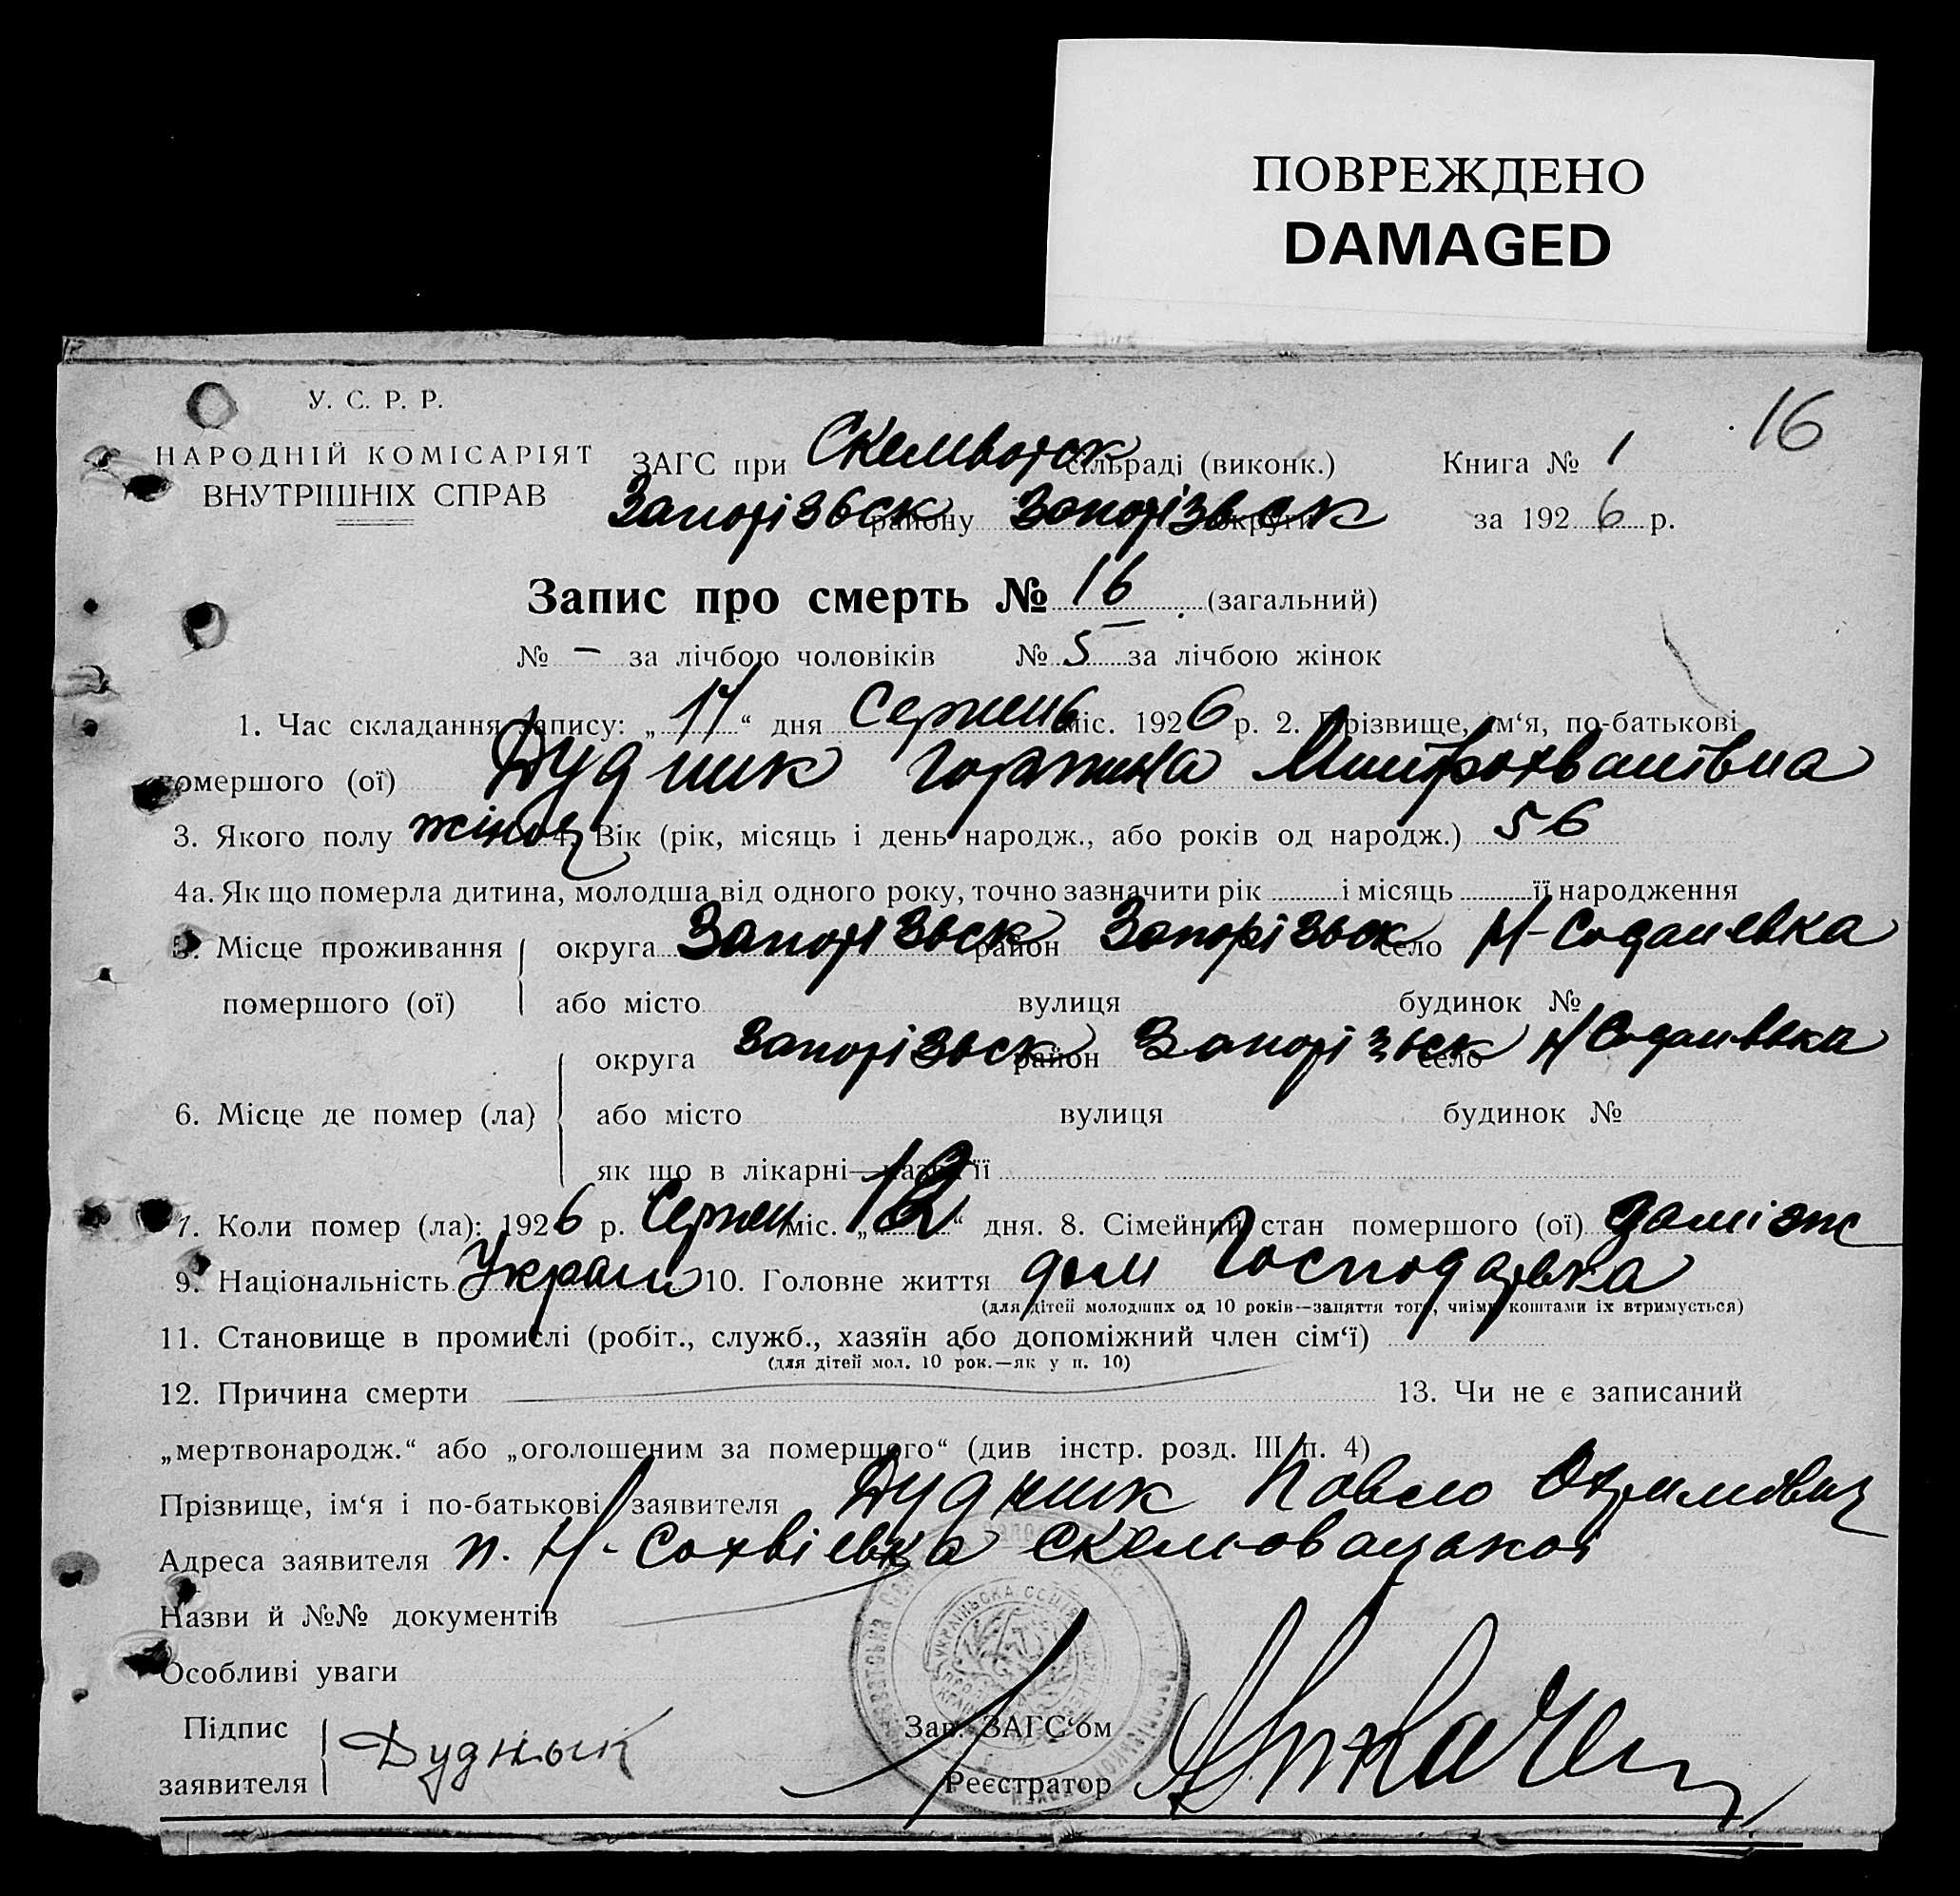 ПОВРЕЖДЕНО
DAMAGED
16
У. С. Р. Р.
НАРОДНІЙ КОМІСАРІЯТ
ВНУТРІШНІХ СПРАВ
ЗАГС при сільраді (виконк.) Книга № 1
Запорізьск району Запорізьск округи за 1926 р.
Запис про смерть № 16 (загальний)
№ – за лічбою чоловіків № 5 за лічбою жінок
1. Час складання запису: „17“ дня Серпень міс. 1926 р. 2. Прізвище, ім‘я, по-батькові
помершого (ої) Дудник Горпина Митрохванівна
3. Якого полу жіноч 4. Вік (рік, місяць і день народж., або років од народж.) 56
4а. Як що померла дитина, молодша від одного року, точно зазначити рік і місяць її народження
5. Місце проживання округа Запорізьск район Запорізьск село
помершого (ої) або місто вулиця будинок №
округа Запорізьск район Запорізьск село
6. Місце де помер (ла) або місто вулиця будинок №
як що в лікарні—назва її
7. Коли помер (ла): 1926 р. Серпен міс. „12“ дня. 8. Сімейний стан помершого (ої)
9. Національність Україн 10. Головне життя дом Господарка
(для дітей молодших од 10 років—заняття того, чиїми коштами їх втримується)
11. Становище в промислі (робіт., служб., хазяїн або допоміжний член сім‘ї)
(для дітей мол. 10 рок.—як у п. 10)
12. Причина смерти 13. Чи не є записаний
„мертвонародж.“ або „оголошеним за помершого“ (див інстр. розд. III п. 4)
Прізвище, ім‘я і по-батькові заявителя Дудник Павло
Адреса заявителя п. Н-Сохвіевка
Назви й №№ документів
УКРАЇНСЬКА
Особливі уваги
Підпис Зав. ЗАГС‘ом
заявителя Дуднык Реєстратор